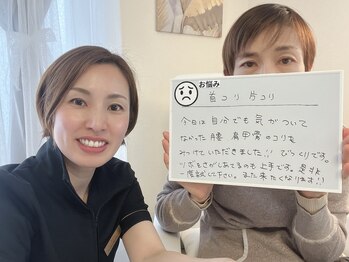 お悩み
首コリ 肩コリ
今日は自分でも気がついて
なかった腰、肩甲骨のコリも
みつけていただきました!! びっくりです。
ツボをさがしあてるのも上手です。是非
一度試して下さい。また来たくなります!!